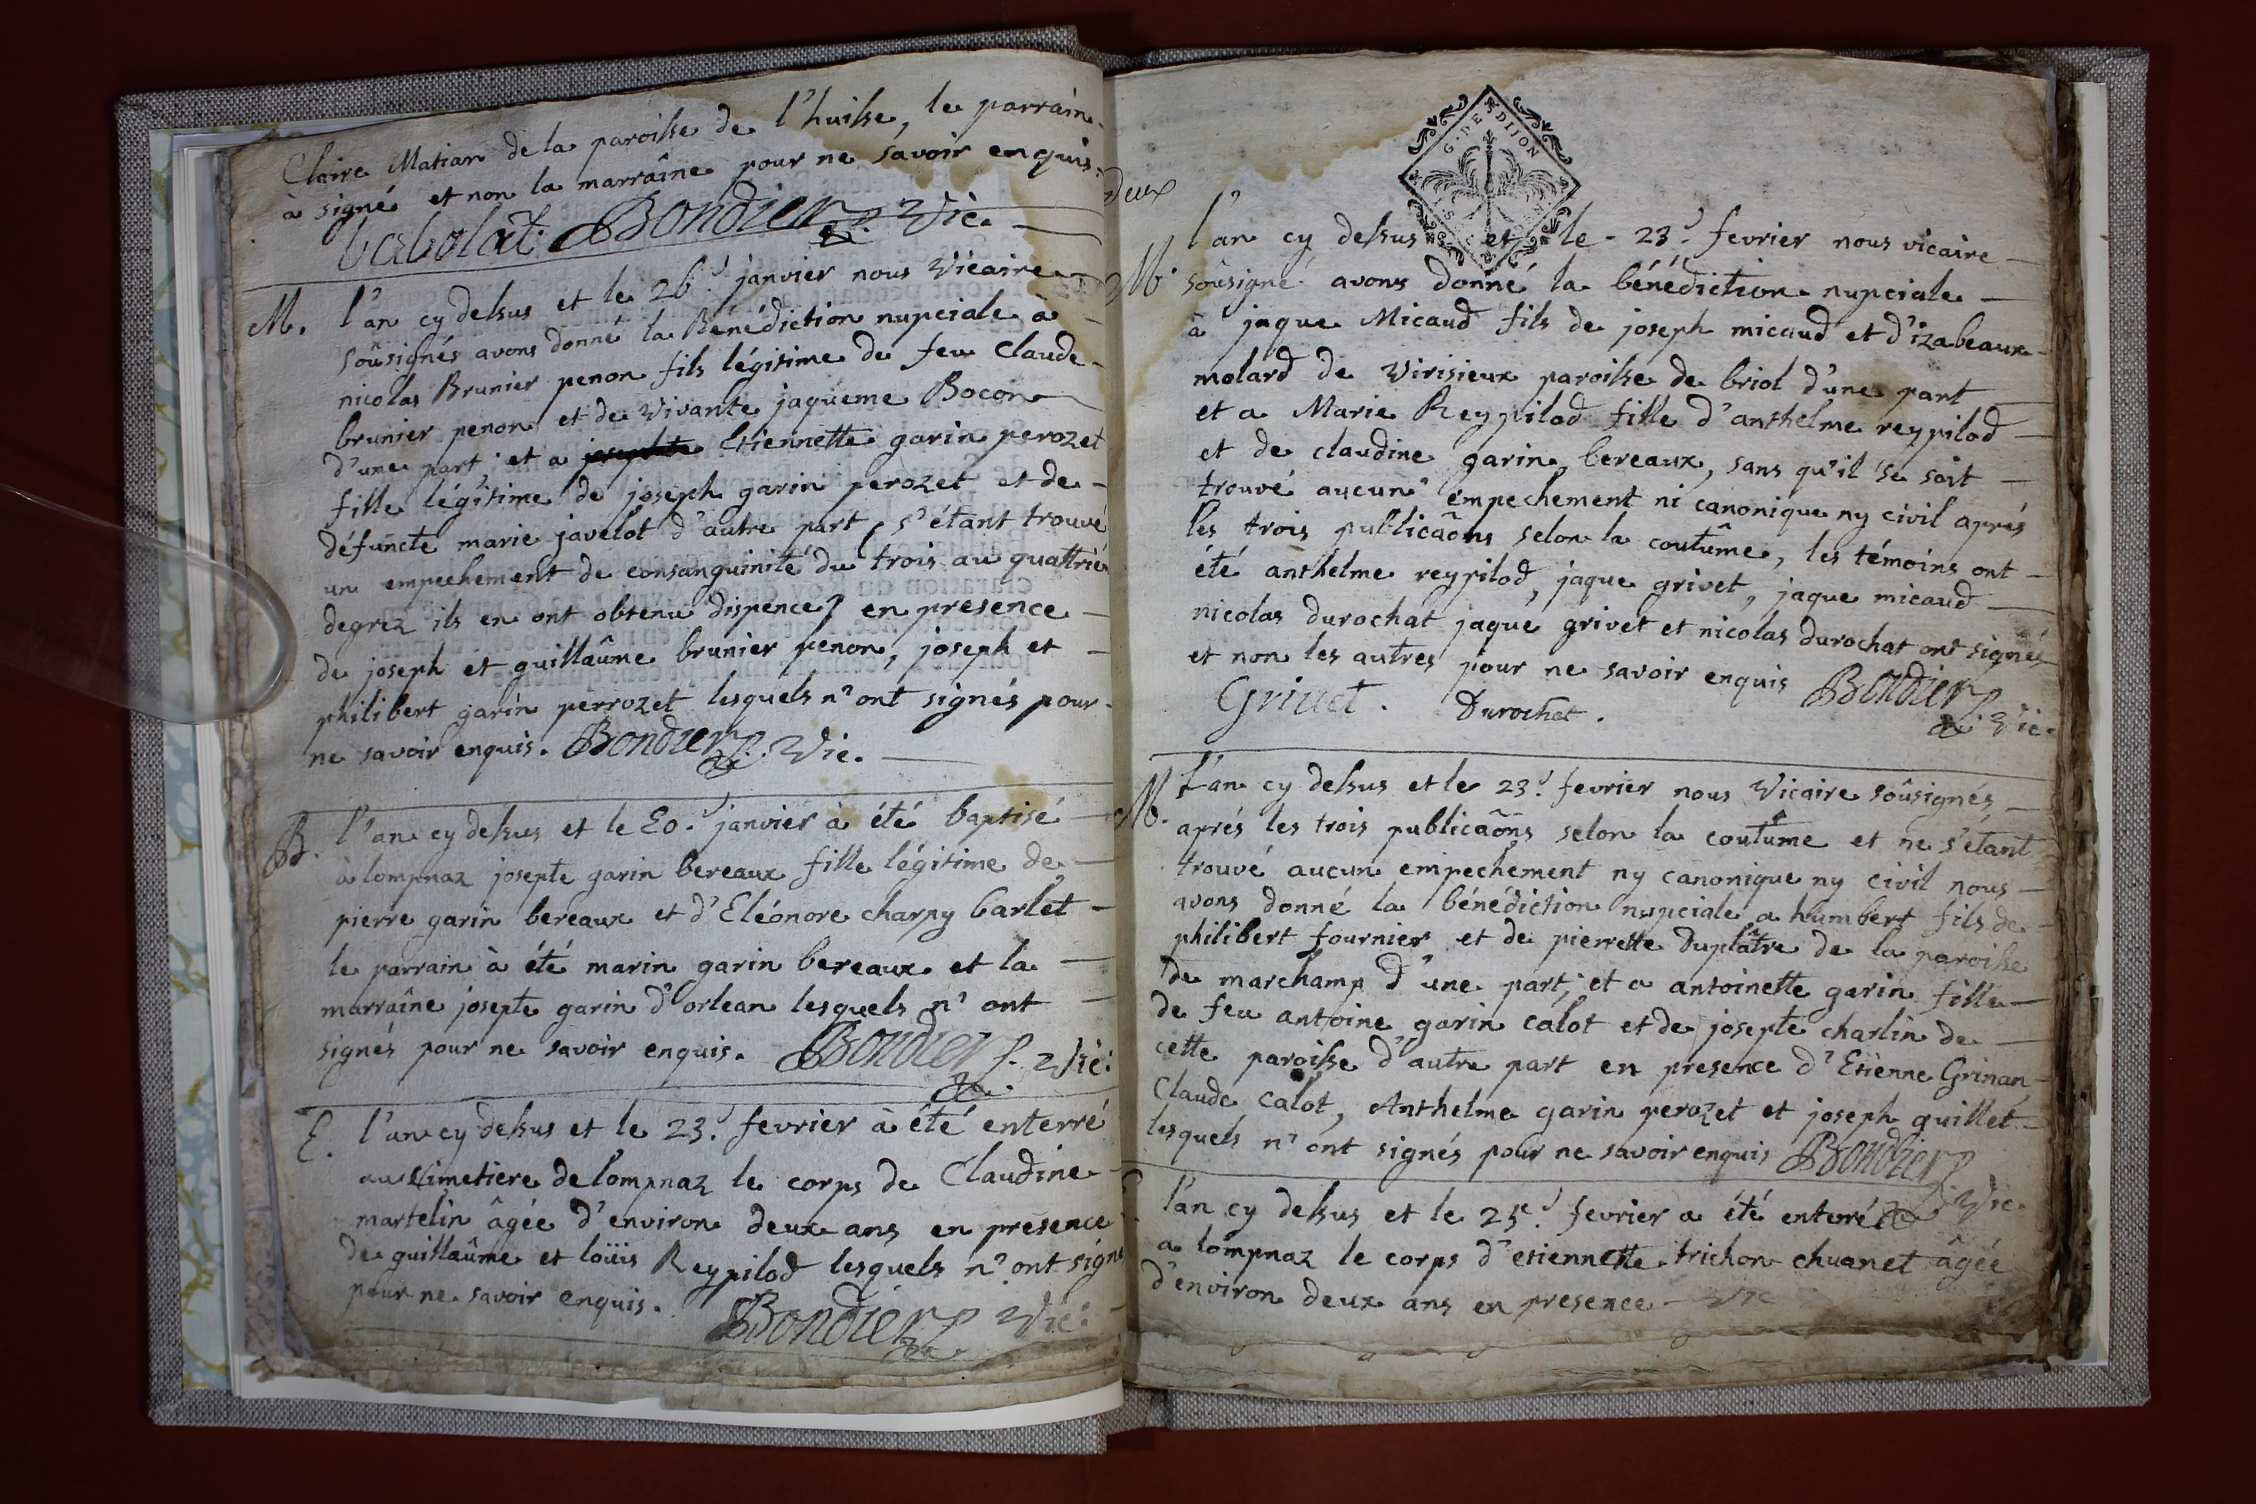 Claire Matian de la paroisse de l'huisse, le parrain
à signé et non la marraîne pour ne savoir enquis.
Cabolat. Bondier p. Vic.
M. l'an cy dessus et le 26.e janvier nous Vicaire
soûsignés avons donné la Bénédiction nupciale à
nicolas Brunier penon fils légitime de feu Claude
brunier penon et de Vivante jaqueme Bocon
d'une part et a Etiennette garin perozet
fille légitime de joseph garin perozet et de
défuncte marie javelot d'autre part, s'étant trouvé
un empechement de consanguinité du trois au quattrié
degrez ils en ont obtenu dispence en presence
de joseph et guillaûme brunier penon, joseph et
philibert garin perrozet lesquels n'ont signés pour
ne savoir enquis. Bondier p. Vic.
B. l'an cy dessus et le 20.e janvier à été baptisé
à lompnaz josepte garin bereaux fille légitime de
pierre garin bereaux et d'Eléonore charpy Carlet
le parrain à été marin garin bereaux et la
marraîne josepte garin d'orlean lesquels n'ont
signés pour ne savoir enquis. Bondier p. Vic.
E. l'an cy dessus et le 23.e fevrier à été enterré
au cimetiere de lompnaz le corps de Claudine
martelin âgée d'environ deux ans en presence
de guillaûme et loüis Reypilod lesquels n'ont signé
pour ne savoir enquis. Bondier p. Vic.
deux
G. DE DIJON
l'an cy dessus et le 23.e fevrier nous vicaire
M. soûsigné avons donné la bénédiction nupciale
à jaque Micaud fils de joseph micaud et d'izabeaux
molard de Virisieux paroisse de briol d'une part
et a Marie Reypilod fille d'anthelme reypilod
et de claudine garin bereaux, sans qu'il se soit
trouvé aucun empechement ni canonique ny civil aprés
les trois publicaõns selon la coutûme, les témoins ont
été anthelme reypilod, jaque grivet, jaque micaud
nicolas durochat jaque grivet et nicolas durochat ont signés
et non les autres pour ne savoir enquis Bondier p.
Grivet. Durochet. Vic.
M. l'an cy dessus et le 23.e fevrier nous Vicaire soûsignés,
aprés les trois publicaõns selon la coutume et ne s'étant
trouvé aucun empechement ny canonique ny civil nous
avons donné la bénédiction nupciale a humbert fils de
philibert fournier et de pierrette duplâtre de la paroisse
de marchamp d'une part, et a antoinette garin fille
de feu antoine garin calot et de josepte charlin de
cette paroisse d'autre part en presence d'Etienne Grinan
Claude calot, Anthelme garin perozet et joseph guillet
lesquels n'ont signés pour ne savoir enquis Bondier p. Vic.
l'an cy dessus et le 25.e fevrier a été enterré
a lompnaz le corps d'etiennette trichon chuanet âgée
d'environ deux ans en presence